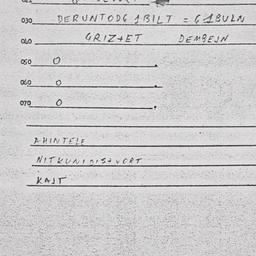 030 DERUNTODG 1BILT = G1BULN
040 GRIZ+ET DEMBEJN
050 O
060 O
070 O
AHINTELE
NITKUNIDIS+VORT
KAJT